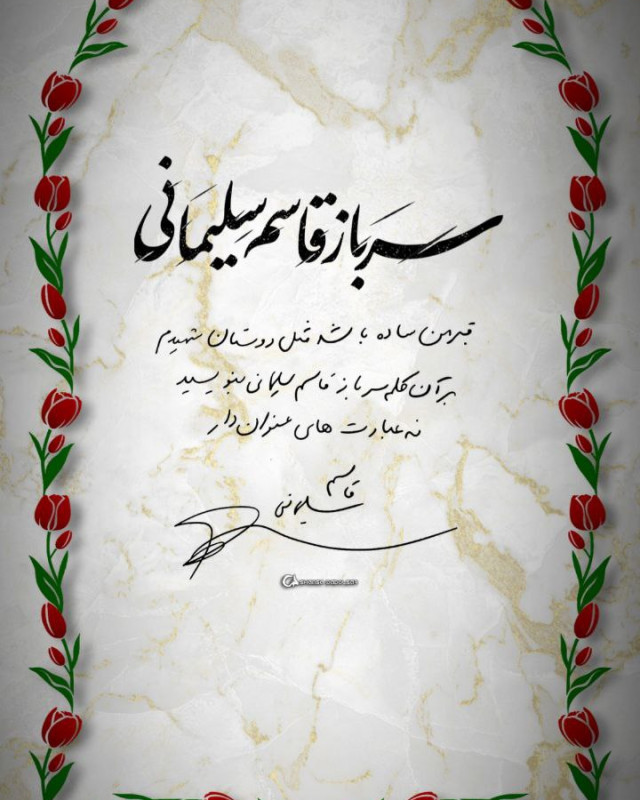 سرباز قاسم سلیمانی
قبر من ساده باشد مثل دوستان شهیدم
بر آن کلمه سرباز قاسم سلیمانی بنویسید
نه عبارت های عنوان دار
قاسم
سلیمانی